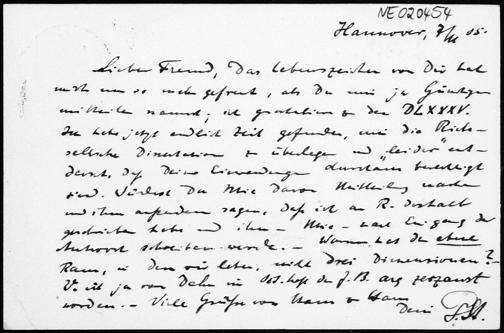 NE020454
Hannover, 7/III 05.
Lieber Freund, Das Lebenszeichen von Dir hat
mich um so mehr gefreut, als Du mir ja Günstiges
mitteilen kannst; ich gratuliere zu den DLXXXV.
Ich habe jetzt endlich Zeit gefunden, mir die
Dissertation zu überlegen und "leider" ent-
deckt, daß Deine Einwendungen durchaus berechtigt
sind. Würdest Du Mie davon Mitteilung machen
und ihm außerdem sagen, daß ich an R. deshalb
geschrieben habe und ihm - Mie - nach Eingang der
Antwort schreiben werde. - Warum hat der ebene
Raum, in dem wir leben, nicht drei Dimensionen?
V. ist ja von Dehn in d. B. arg zerzaust
worden. - Viele Grüße von Haus zu Haus
Dein